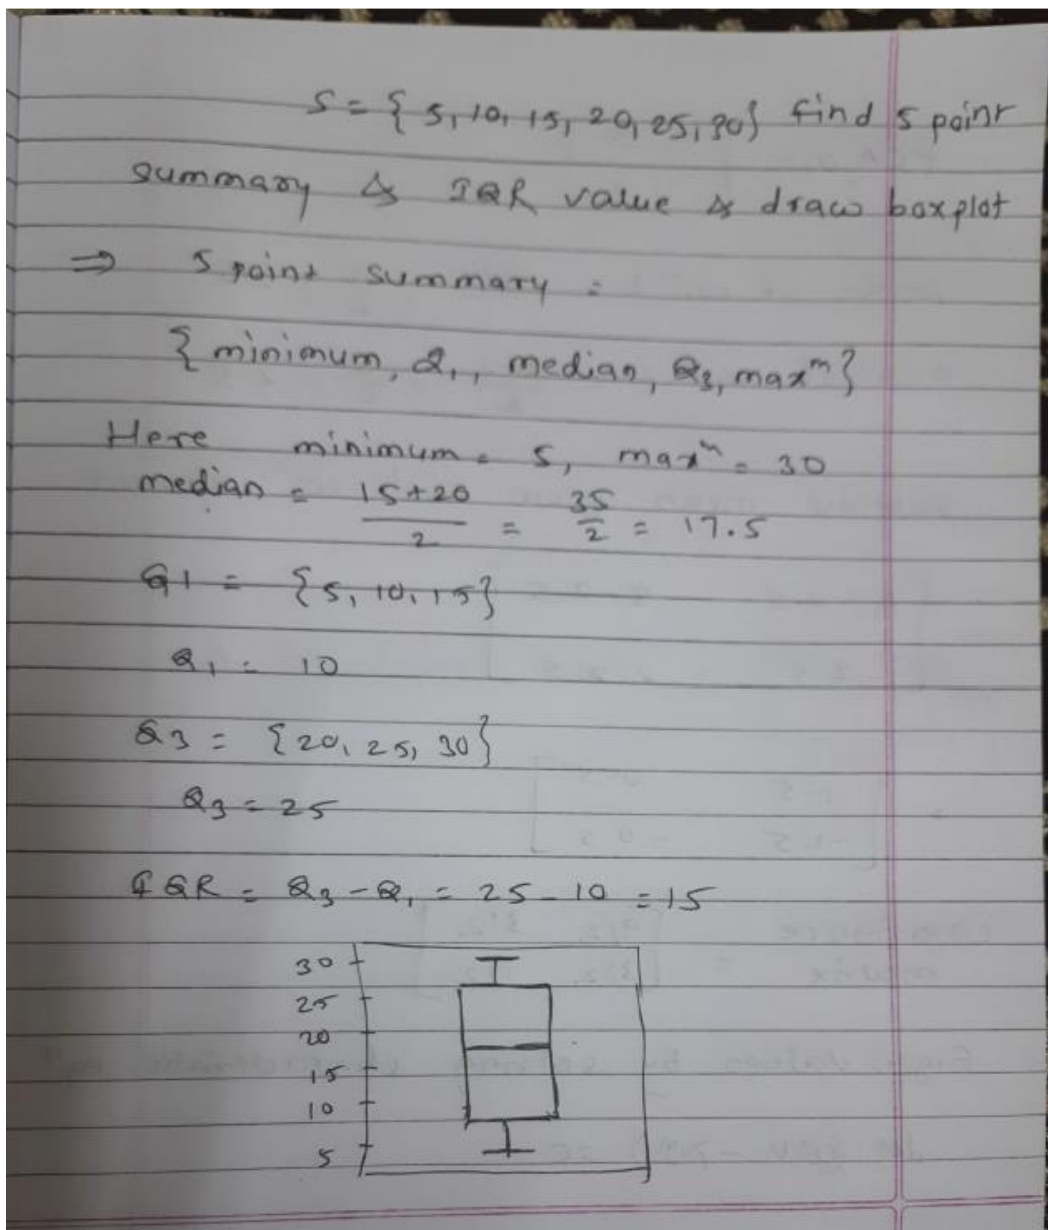 S = { 5, 10, 15, 20, 25, 30} find 5 point
summary & IQR value & draw boxplot
⇒ 5 point summary =
{ minimum, Q₁, median, Q₃, maxᵐ}
Here minimum = 5, maxᵐ = 30
median = 15+20/2 = 35/2 = 17.5
Q1 = {5, 10, 15}
Q₁ = 10
Q3 = {20, 25, 30}
Q₃ = 25
IQR = Q₃ - Q₁ = 25 - 10 = 15
30
25
20
15
10
5